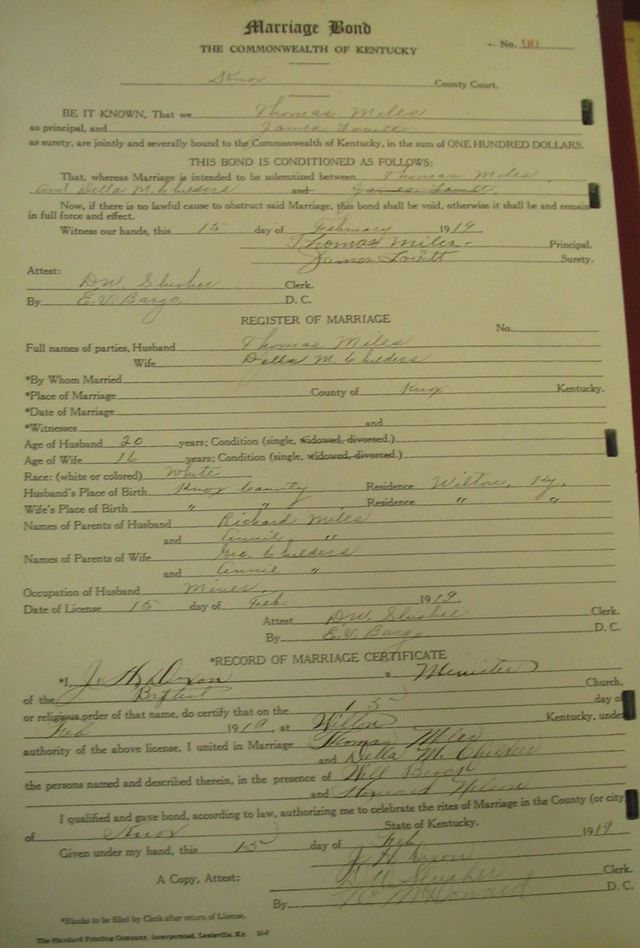 Marriage Bond
THE COMMONWEALTH OF KENTUCKY
No. 90
Knox County Court.
BE IT KNOWN, That we Thomas Miles
as principal, and James Lovitt
as surety, are jointly and severally bound to the Commonwealth of Kentucky, in the sum of ONE HUNDRED DOLLARS.
THIS BOND IS CONDITIONED AS FOLLOWS:
That, whereas Marriage is intended to be solemnized between Thomas Miles,
and Della M. Childers and James Lovitt.
Now, if there is no lawful cause to obstruct said Marriage, this bond shall be void, otherwise it shall be and remain
in full force and effect.
Witness our hands, this 15 day of February 1919
Thomas Miles Principal.
James Lovitt Surety.
Attest:
DW Slusher Clerk.
By E.V. Bargo D. C.
REGISTER OF MARRIAGE
No.
Full names of parties, Husband Thomas Miles
Wife Della M. Childers
*By Whom Married
*Place of Marriage County of Knox Kentucky.
*Date of Marriage
*Witnesses and
Age of Husband 20 years; Condition (single, widowed, divorced.)
Age of Wife 16 years; Condition (single, widowed, divorced.)
Race: (white or colored) White
Husband's Place of Birth Knox County Residence Wilton, Ky.
Wife's Place of Birth " " Residence " "
Names of Parents of Husband Richard Miles
and Annie "
Names of Parents of Wife Geo. Childers
and Annie "
Occupation of Husband Miner.
Date of License 15 day of Feb. 1919
Attest DW. Slusher Clerk.
By E.V. Bargo D. C.
*RECORD OF MARRIAGE CERTIFICATE
*I, J. H. Dixon a Minister
of the Baptist Church,
or religious order of that name, do certify that on the 15 day of
Feb 1919 at Wilton Kentucky, under
authority of the above license, I united in Marriage Thomas Miles
and Della M. Childers
the persons named and described therein, in the presence of Will Brock
and
I qualified and gave bond, according to law, authorizing me to celebrate the rites of Marriage in the County (or city)
of Knox State of Kentucky.
Given under my hand, this 15 day of Feb 1919
J. H. Dixon
A Copy, Attest: D W Slusher Clerk.
By McDonald D. C.
*Blanks to be filled by Clerk after return of License.
The Standard Printing Company, Incorporated, Louisville, Ky.